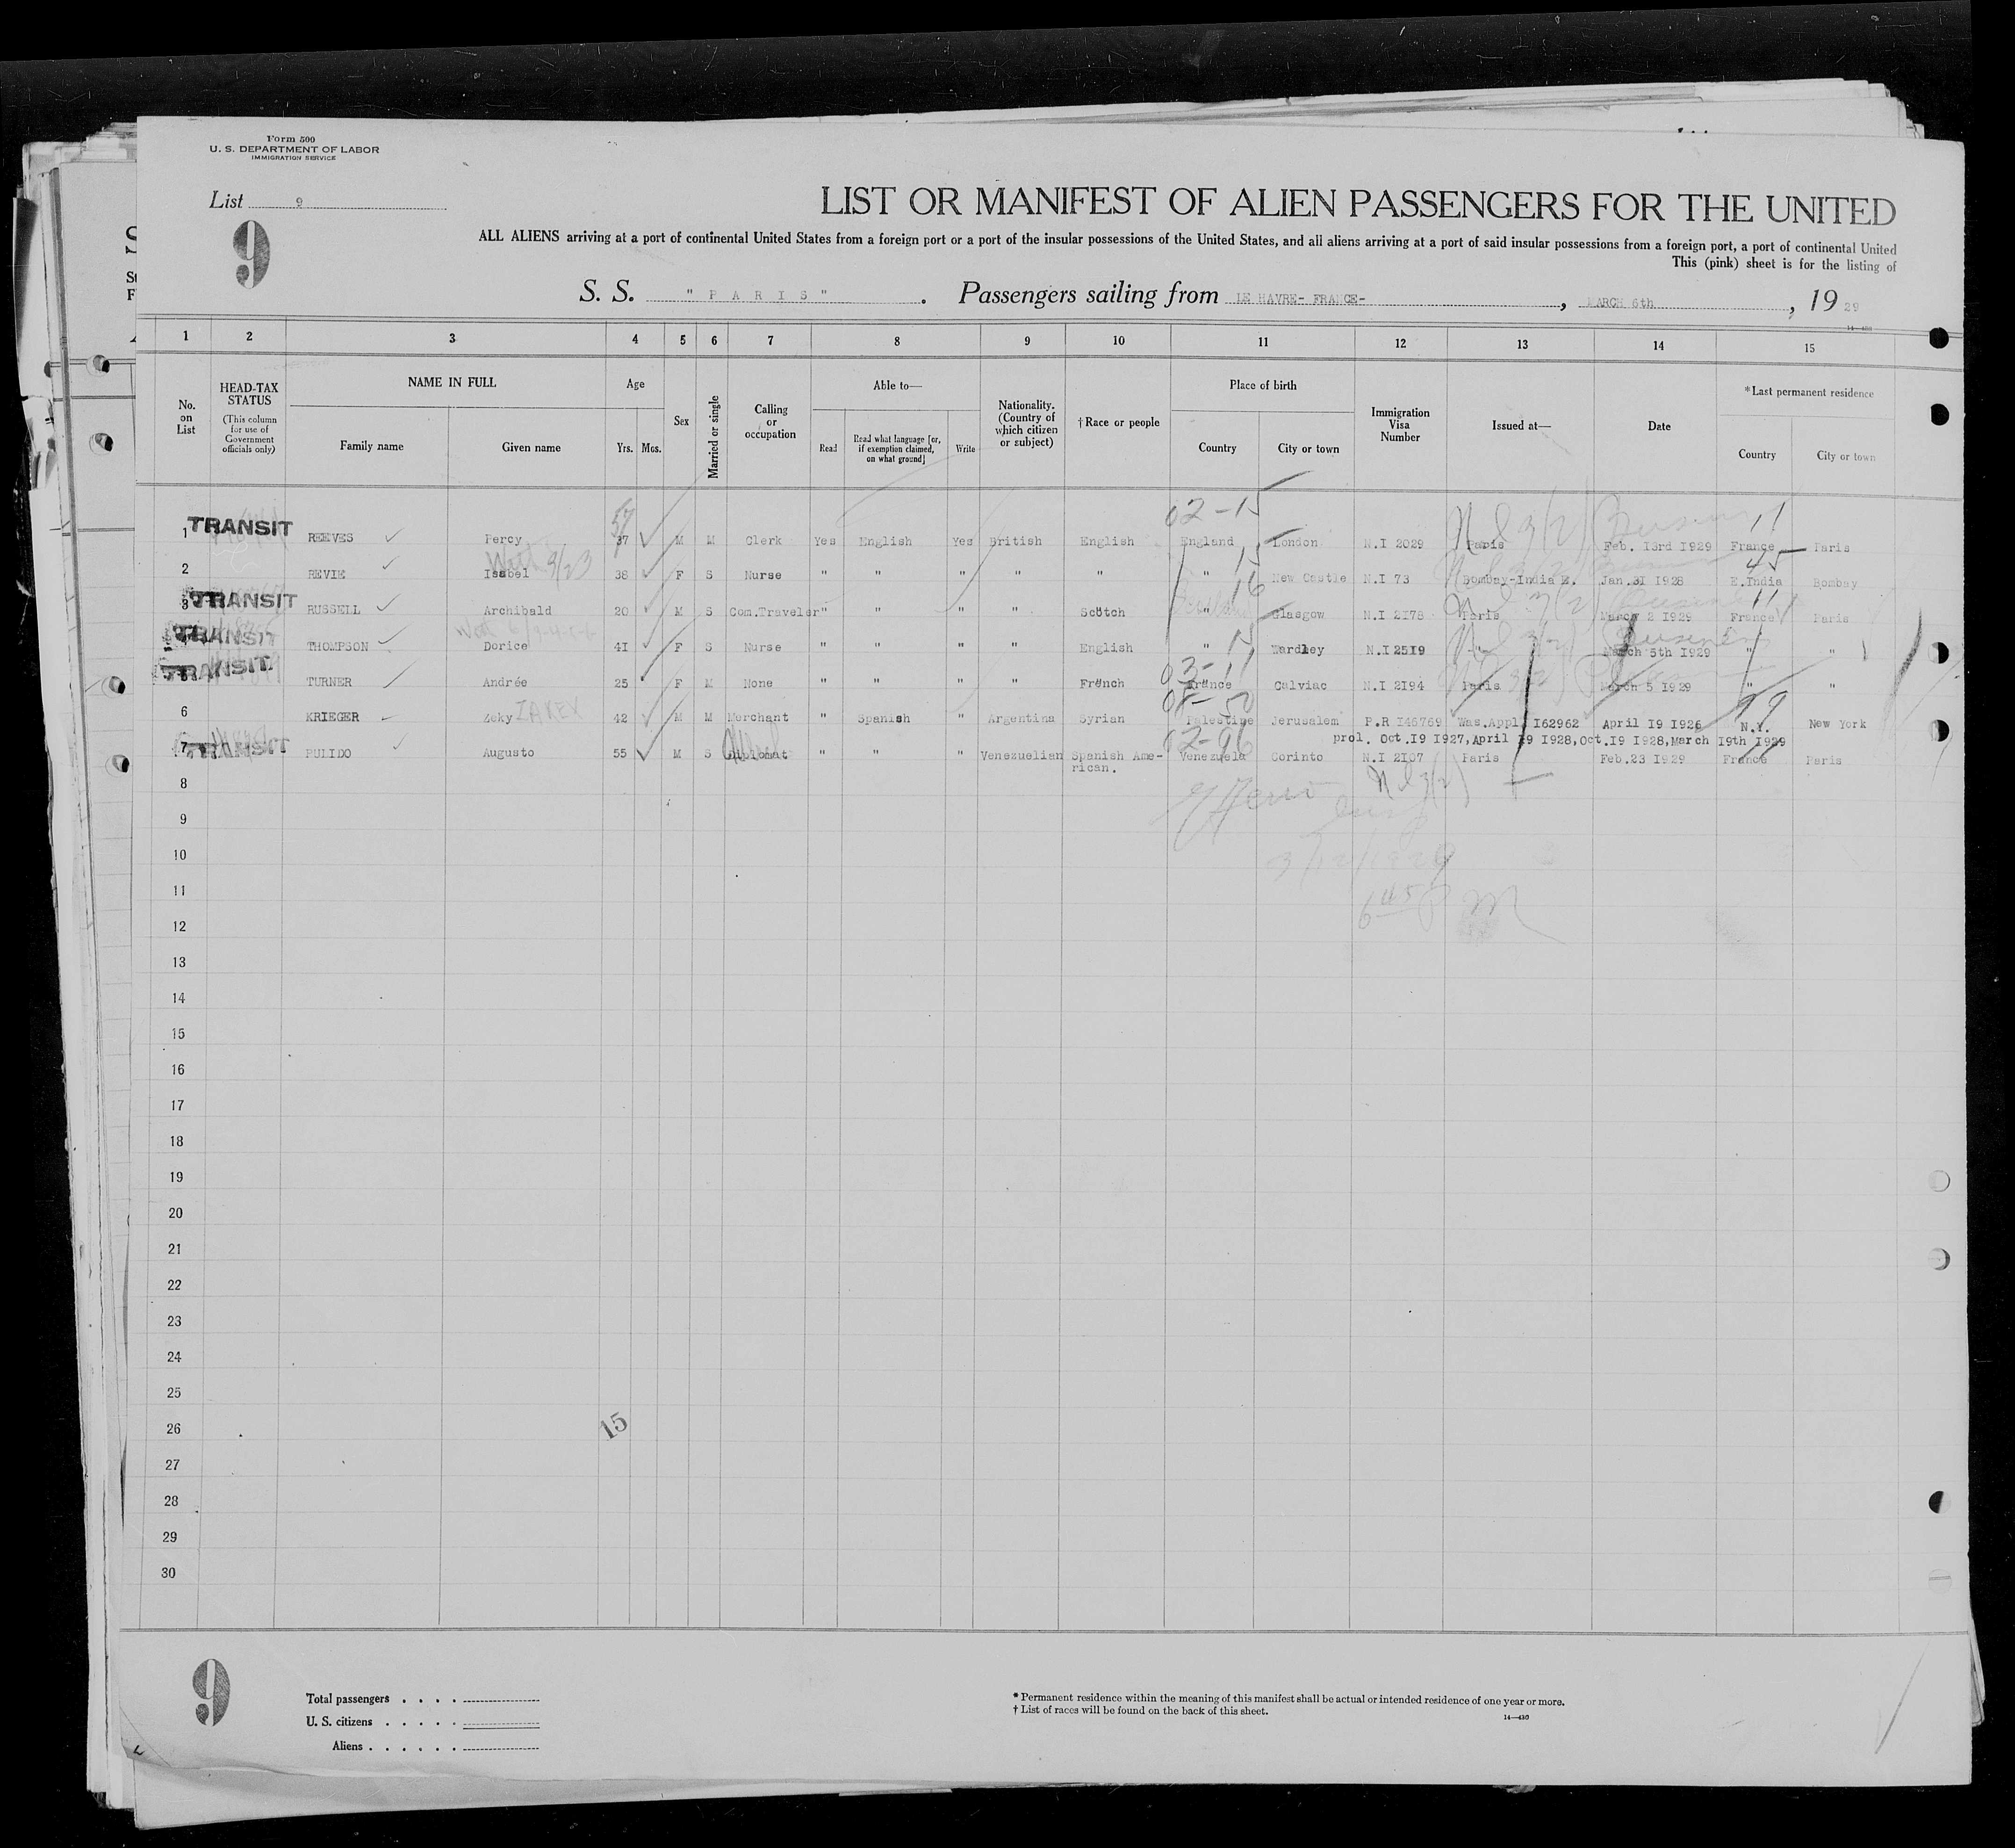 Form 500
U. S. DEPARTMENT OF LABOR
IMMIGRATION SERVICE
List 9
9
LIST OR MANIFEST OF ALIEN PASSENGERS FOR THE UNITED
ALL ALIENS arriving at a port of continental United States from a foreign port or a port of the insular possessions of the United States, and all aliens arriving at a port of said insular possessions from a foreign port, a port of continental United
This (pink) sheet is for the listing of
S. S. " P A R I S " . Passengers sailing from LE HAVRE- FRANCE- , MARCH 6th , 19 29
1 2 3 4 5 6 7 8 9 10 11 12 13 14 15
No. on List
HEAD-TAX STATUS (This column for use of Government officials only)
NAME IN FULL
Family name Given name
Age
Yrs. Mos.
Sex
Married or single
Calling or occupation
Able to—
Read Read what language [or, if exemption claimed, on what ground] Write
Nationality. (Country of which citizen or subject)
† Race or people
Place of birth
Country City or town
Immigration Visa Number
Issued at—
Date
*Last permanent residence
Country City or town
02-15
1 TRANSIT REEVES Percy 37 M M Clerk Yes English Yes British English England London N.I 2029 Paris Feb. 13rd 1929 France Paris
2 REVIE Isabel 38 F S Nurse " " " " " " New Castle N.I 73 Bombay-India E. Jan.31 1928 E.India Bombay
3 TRANSIT RUSSELL Archibald 20 M S Com.Traveler " " " " Scotch " Glasgow N.I 2178 Paris March 2 1929 France Paris
4 TRANSIT THOMPSON Dorice 41 F S Nurse " " " " English " Yardley N.I 2519 " March 5th 1929 " "
5 TRANSIT TURNER Andrée 25 F M None " " " " French France Calviac N.I 2194 Paris March 5 1929 " "
6 KRIEGER Zeky 42 M M Merchant " Spanish " Argentina Syrian Palestine Jerusalem P.R I46769 Was.Appl. I62962 April 19 1926 N.Y. New York
prol. Oct.19 1927,April 19 1928,Oct.19 1928,March 19th 1929
7 TRANSIT PULIDO Augusto 55 M S Diplomat " " " Venezuelian Spanish Ame-rican. Venezuela Corinto N.I 2107 Paris Feb.23 1929 France Paris
8
9
10
3/12/1929
11
6 45 P M
12
13
14
15
16
17
18
19
20
21
22
23
24
25
26
15
27
28
29
30
9
Total passengers . . . .
U. S. citizens . . . . .
Aliens . . . . . .
* Permanent residence within the meaning of this manifest shall be actual or intended residence of one year or more.
† List of races will be found on the back of this sheet.
14—430